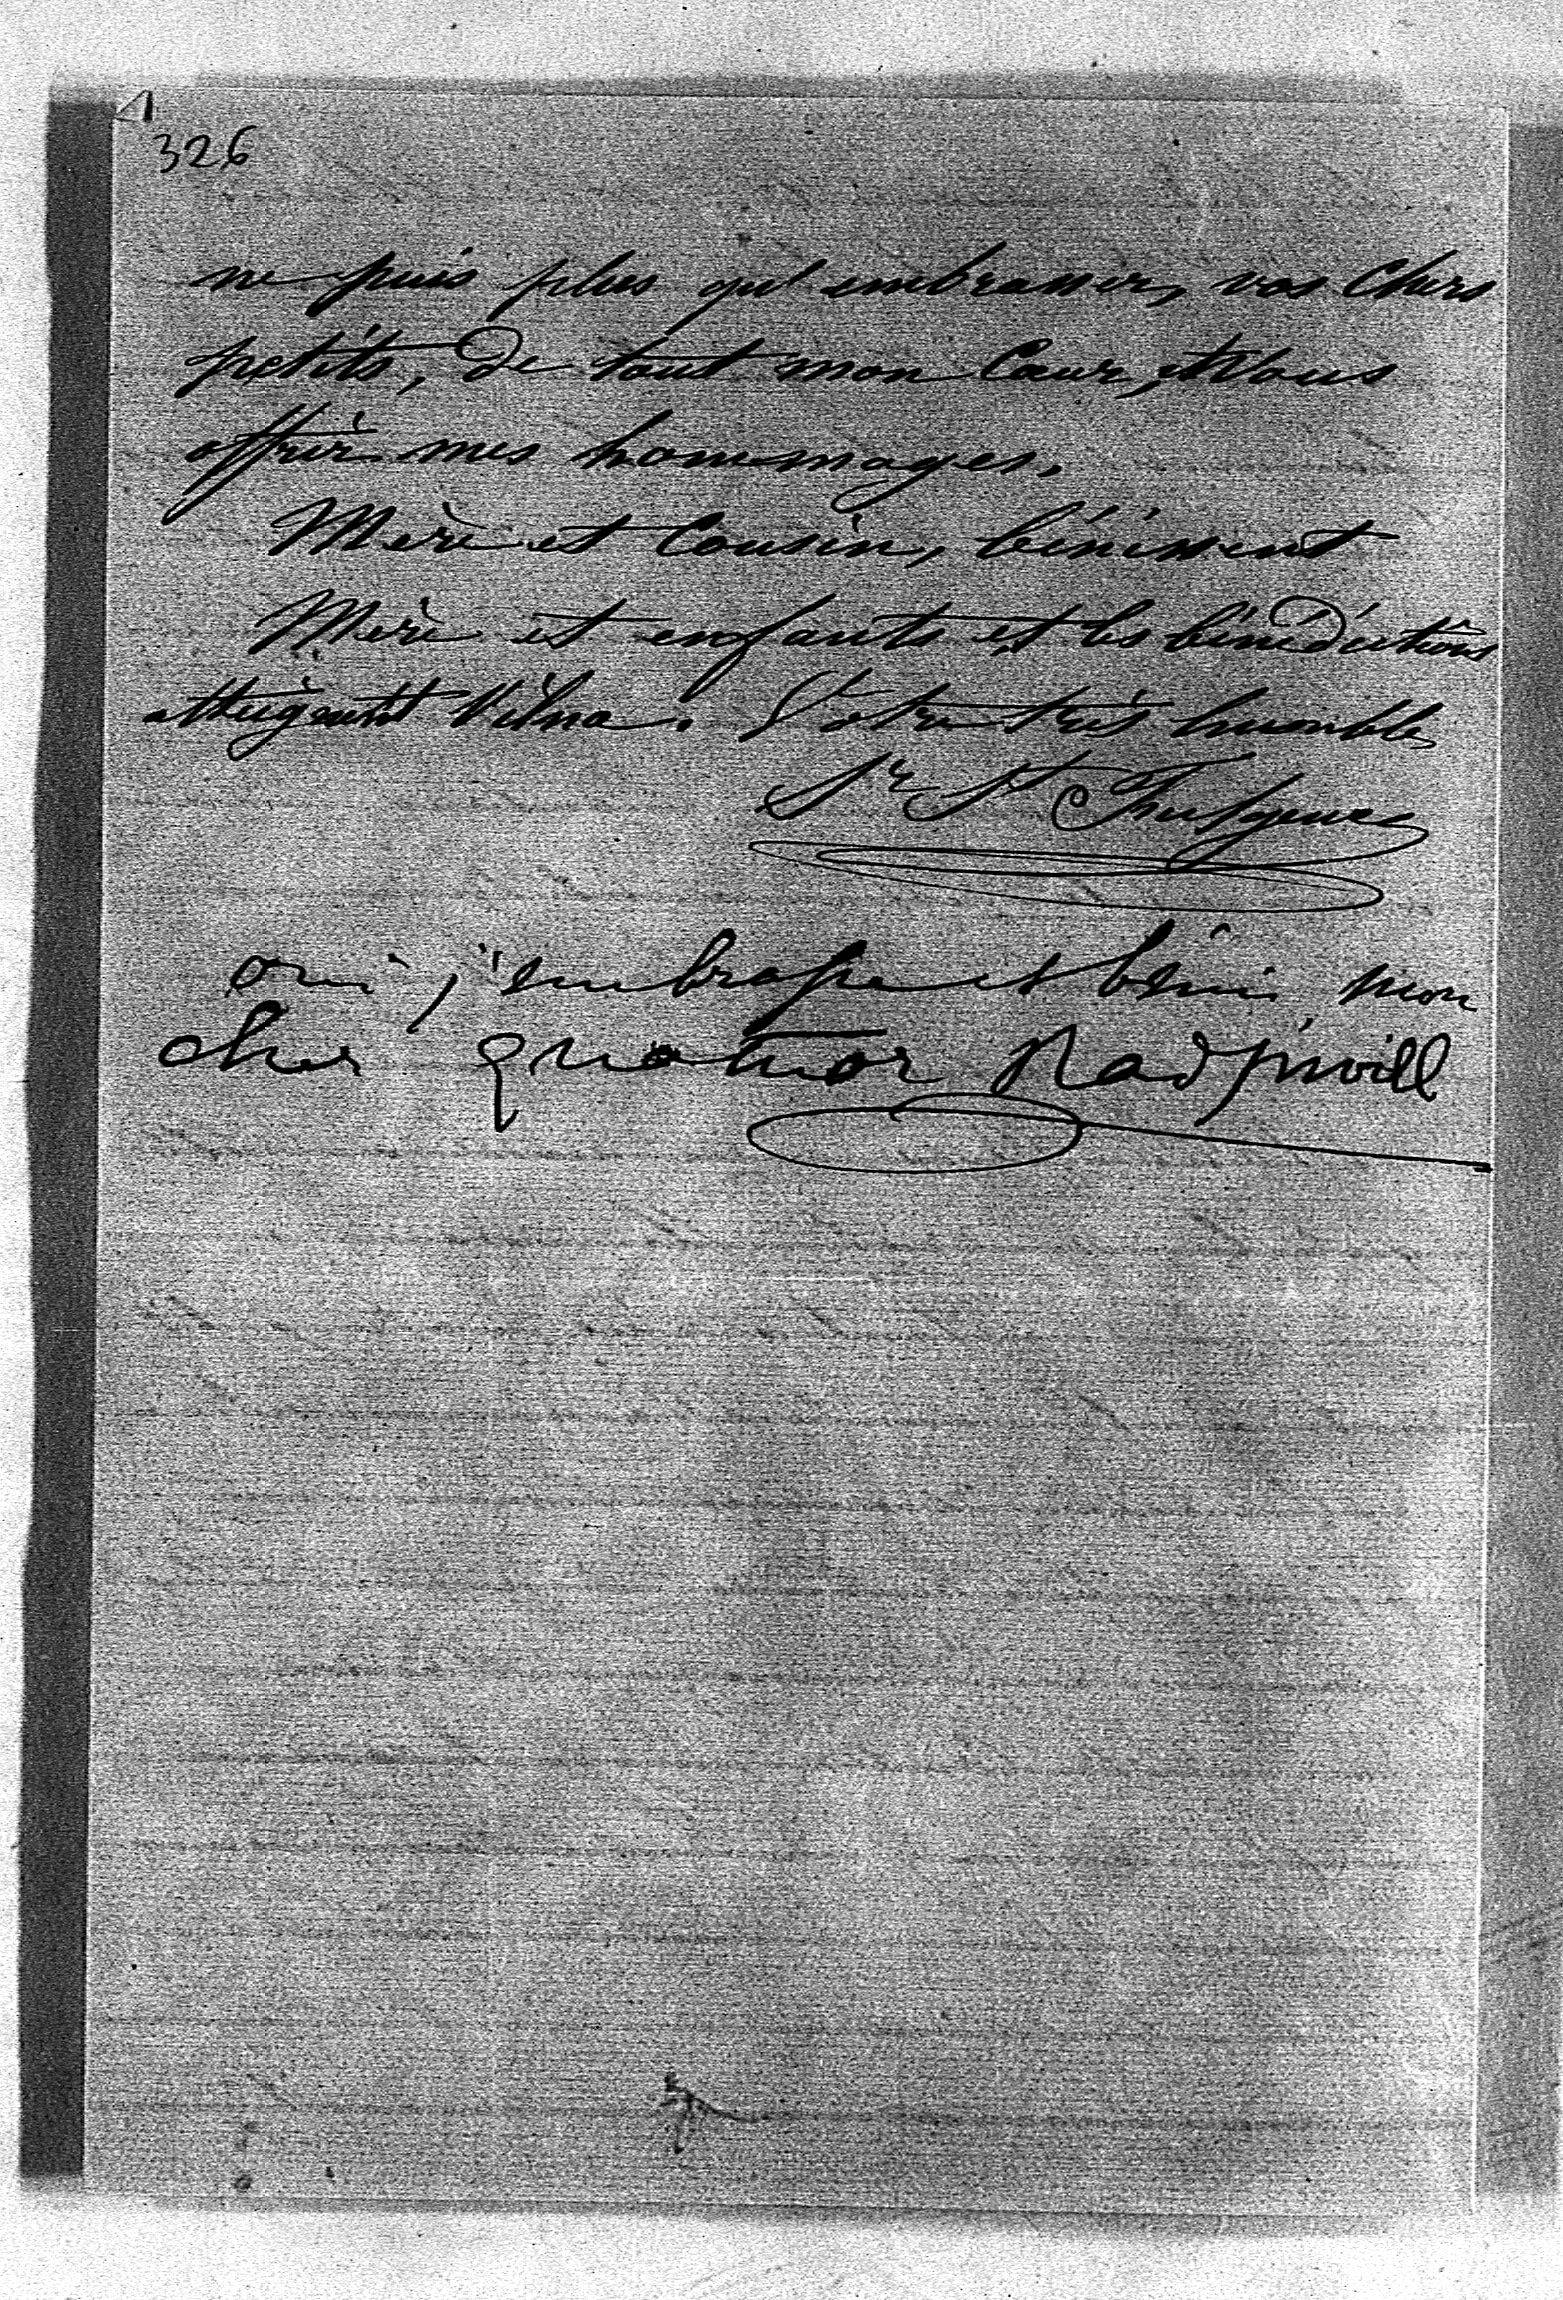 326
ne puis plus qu'embrasser, vos Chers
petits, de tout mon Cœur, et Vous
offrir mes hommages.
Mère et Cousin, bénissent
Mère et enfants et les bénédictions
atteignent Vilna. Votre très humble
Sr St Fulgence
oui j'embrasse et béni mon
cher quatuor Radziwill